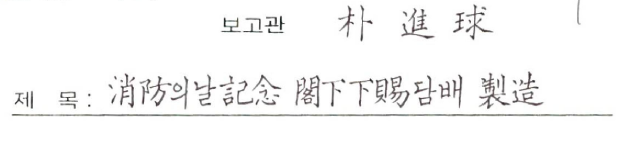 보고관 朴進球
제 목: 消防의날記念 閣下下賜담배 製造